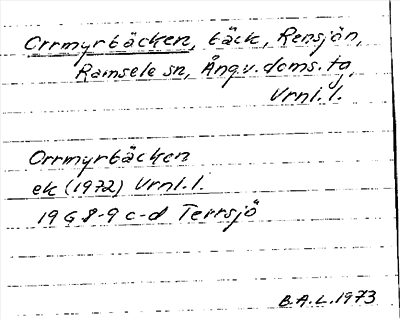 Orrmyrbäcken, bäck, Rensjön,
Ramsele sn, Ång.v. doms. tg,
Vrnl. l.
Orrmyrbäcken
ek (1972) Vrnl. l.
19 G 8-9 c-d Terrsjö
B.A.L. 1973